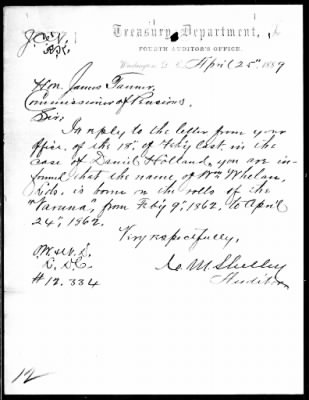 Treasury Department,
FOURTH AUDITOR'S OFFICE.
Washington, D. C., April 25", 1889
Hon. James Tanner,
Commissioner of Pensions.
Sir:
In reply to the letter from your
office, of the 18", of Feby last, in the
case of Daniel Holland, you are in-
formed that the name of Wm Whelan,
Lds. is borne on the rolls of the
"Varuna", from Feby 9", 1862, to April
24", 1862.
Very respectfully,
#12.334
C M Shelley
Auditor
12